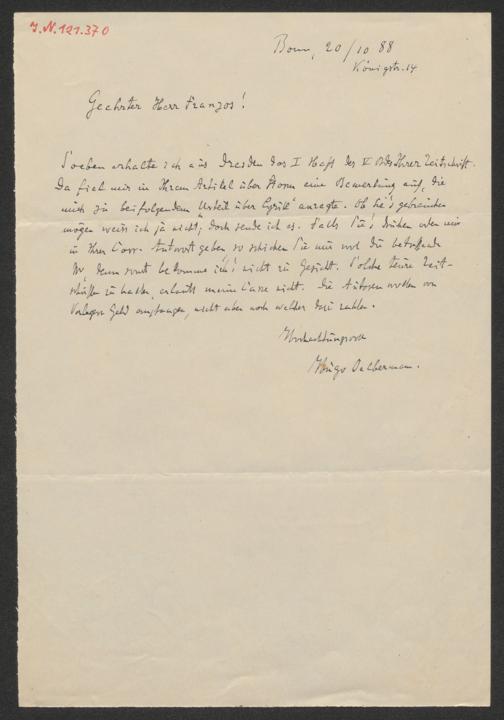 J.N. 121.370
Bonn, 20/10 88
Königstr. 14
Geehrter Herr Franzos!
Soeben erhalte ich aus Dresden das I Heft des V Bds Ihrer Zeitschrift.
Da fiel mir in Ihrem Artikel über Storm eine Bemerkung auf, die
mich zu beifolgendem "Urteil über Lyrik" anregte. Ob Sie's gebrauchen
mögen weiss ich ja nicht; doch sende ich es. Falls Sie's drucken oder mir
in Ihrer Corr. Antwort geben so schicken Sie mir wol die betreffende
Nr denn sonst bekomme ich's nicht zu Gesicht. Solche teure Zeit-
schriften zu halten, erlaubt meine Casse nicht. Die Autoren wollen vom
Verleger Geld empfangen, nicht aber noch welches dazu zahlen.
Hochachtungsvoll
Hugo